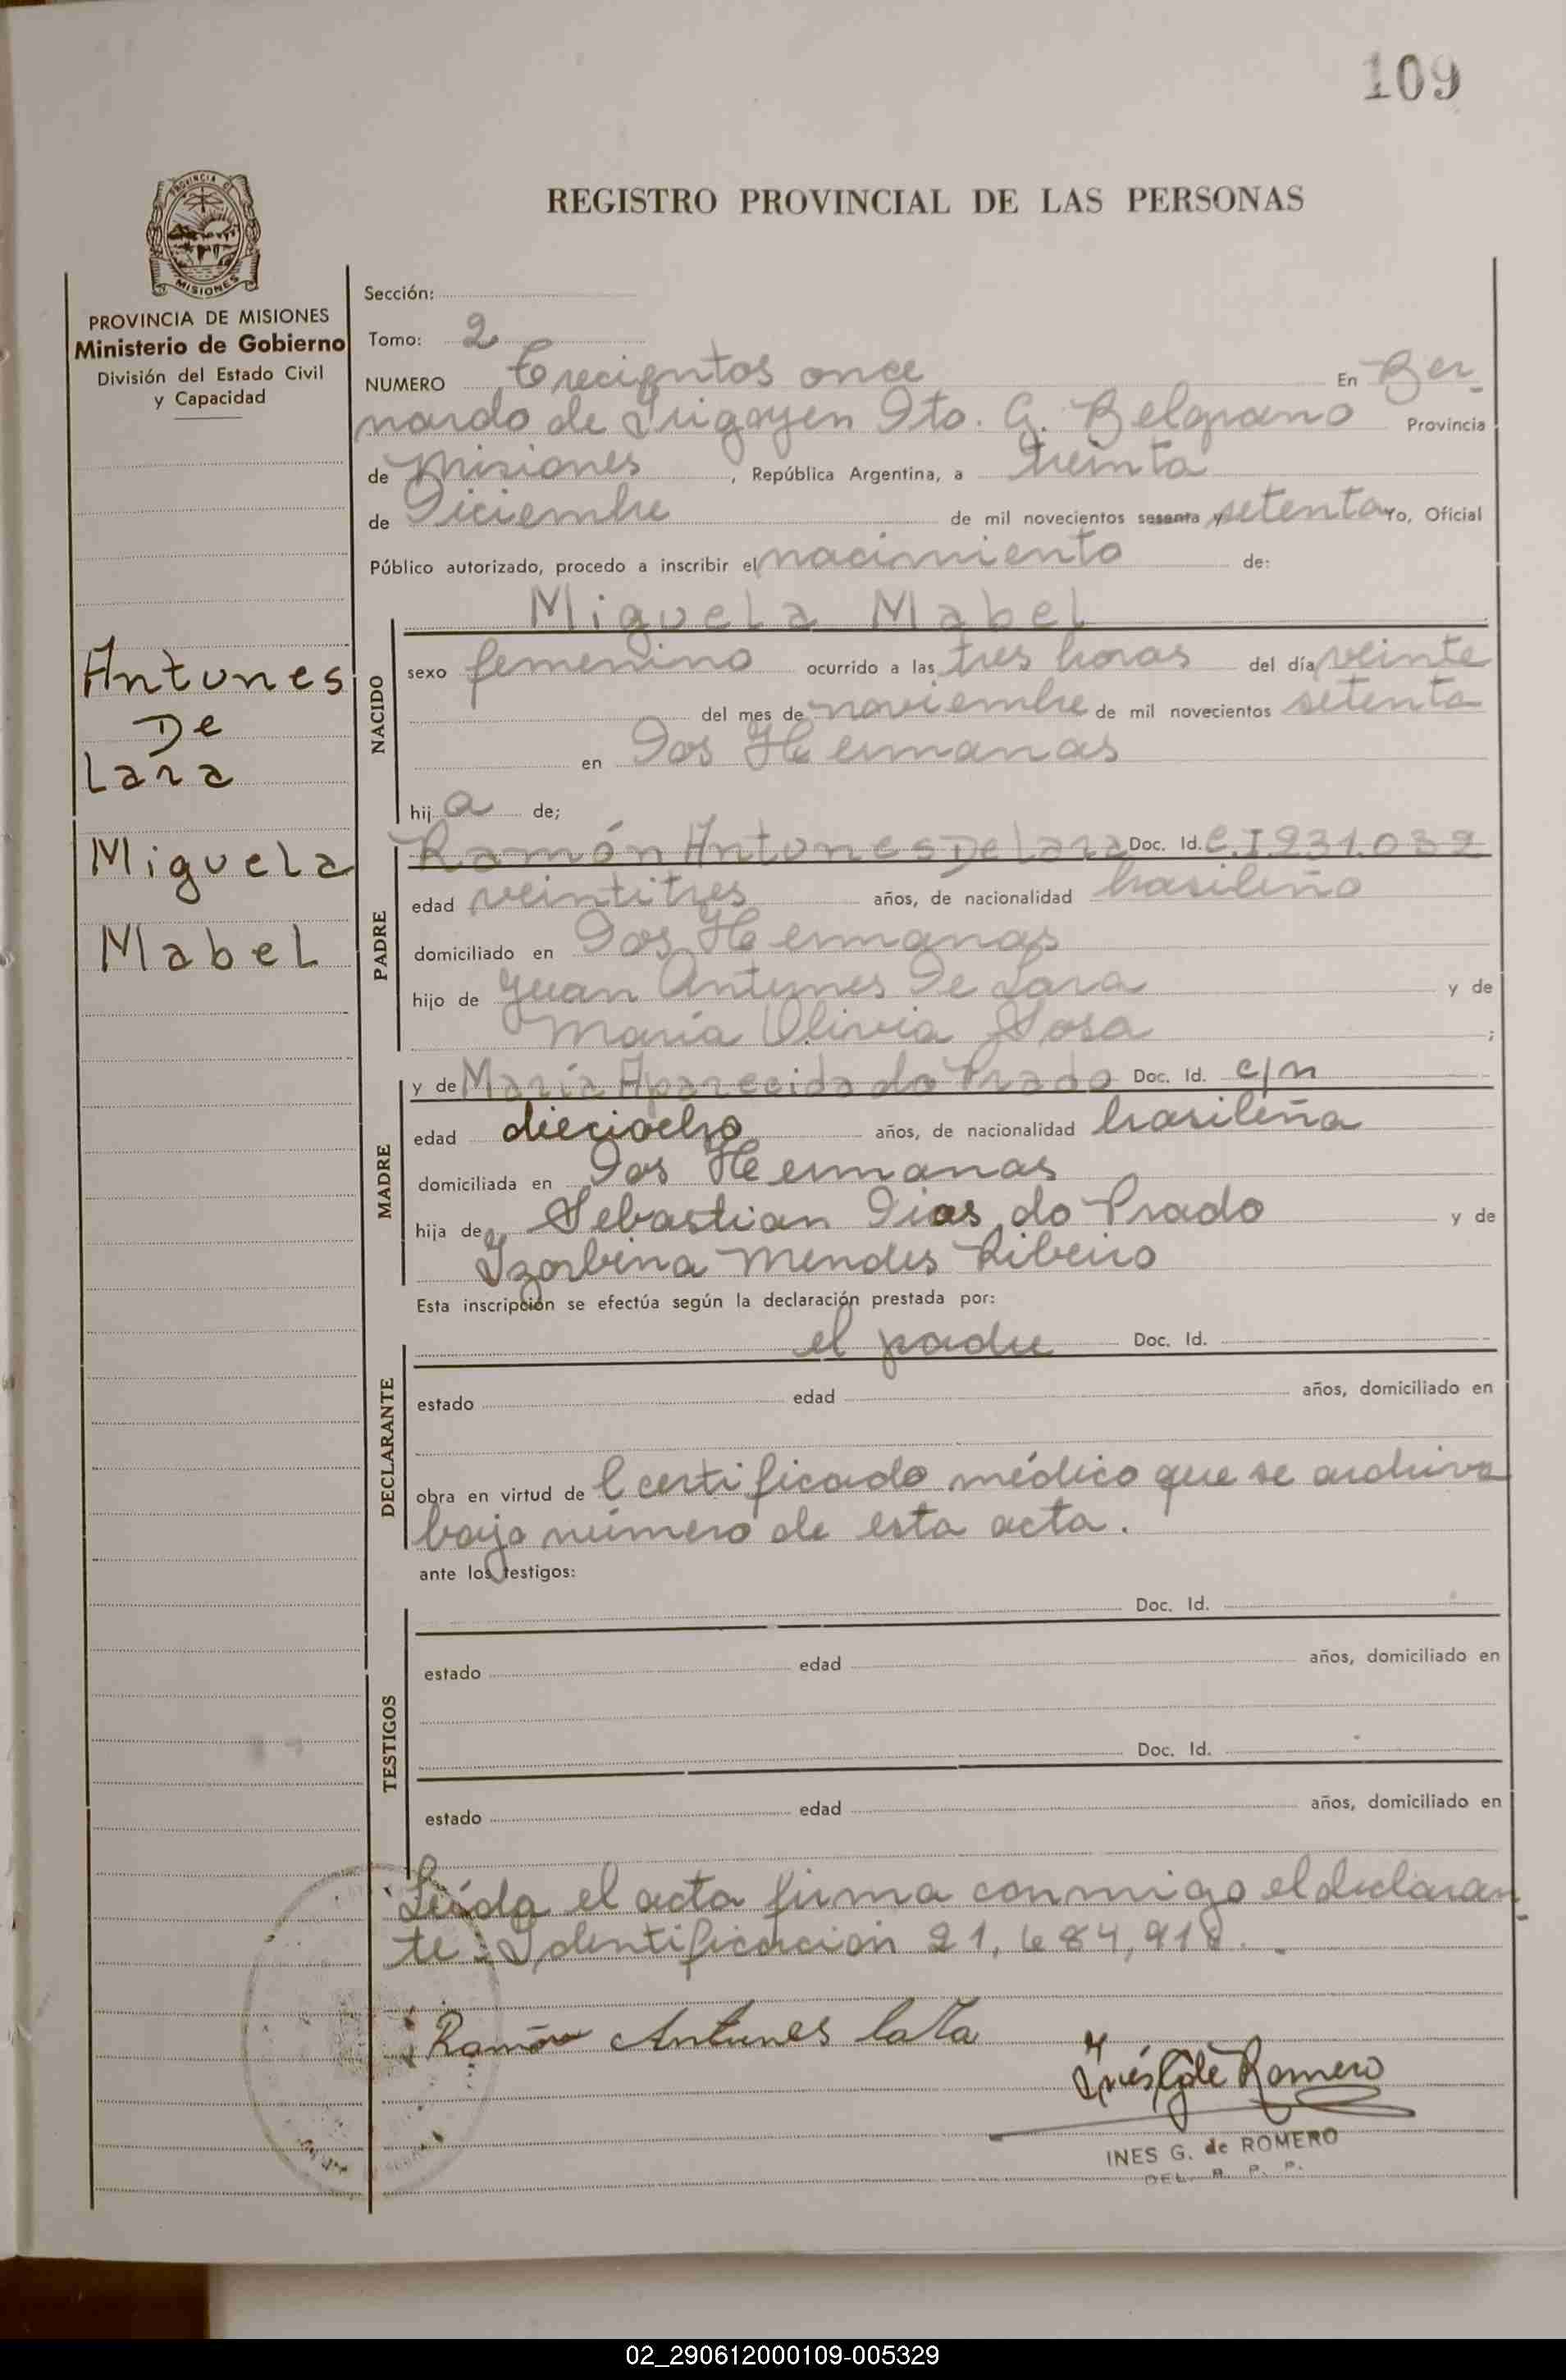 109
PROVINCIA DE
MISIONES
REGISTRO PROVINCIAL DE LAS PERSONAS
PROVINCIA DE MISIONES
Ministerio de Gobierno
División del Estado Civil
y Capacidad
Antunes
De
Lara
Miguela
Mabel
Sección:
Tomo: 2
NUMERO Trecientos once En Ber-
nardo de Irigoyen Dto. G. Belgrano Provincia
de Misiones, República Argentina, a treinta
de Diciembre de mil novecientos sesenta y setenta Yo, Oficial
Público autorizado, procedo a inscribir el nacimiento de:
Miguela Mabel
NACIDO
sexo femenino ocurrido a las tres horas del día veinte
del mes de noviembre de mil novecientos setenta
en Dos Hermanas
hij a de;
PADRE
Ramón Antunes De Lara Doc. Id. C.I 931.039
edad veintitres años, de nacionalidad brasileño
domiciliado en Dos Hermanas
hijo de Juan Antunes De Lara y de
María Olivia Sosa ;
MADRE
y de María Aparecida do Prado Doc. Id. c/n
edad dieciocho años, de nacionalidad brasileña
domiciliada en Dos Hermanas
hija de Sebastian Dias do Prado y de
Izorbina Mendes Ribeiro
Esta inscripción se efectúa según la declaración prestada por:
DECLARANTE
el padre Doc. Id.
estado edad años, domiciliado en
obra en virtud de l certificado médico que se archiva
bajo número de esta acta.
ante los testigos:
TESTIGOS
Doc. Id.
estado edad años, domiciliado en
Doc. Id.
estado edad años, domiciliado en
Leída el acta firma conmigo el declaran-
te. Identificación 21,684,918.
Ramón Antunes laRa
Inés G de Romero
INES G. de ROMERO
DEL. R. P. P.
02_290612000109-005329